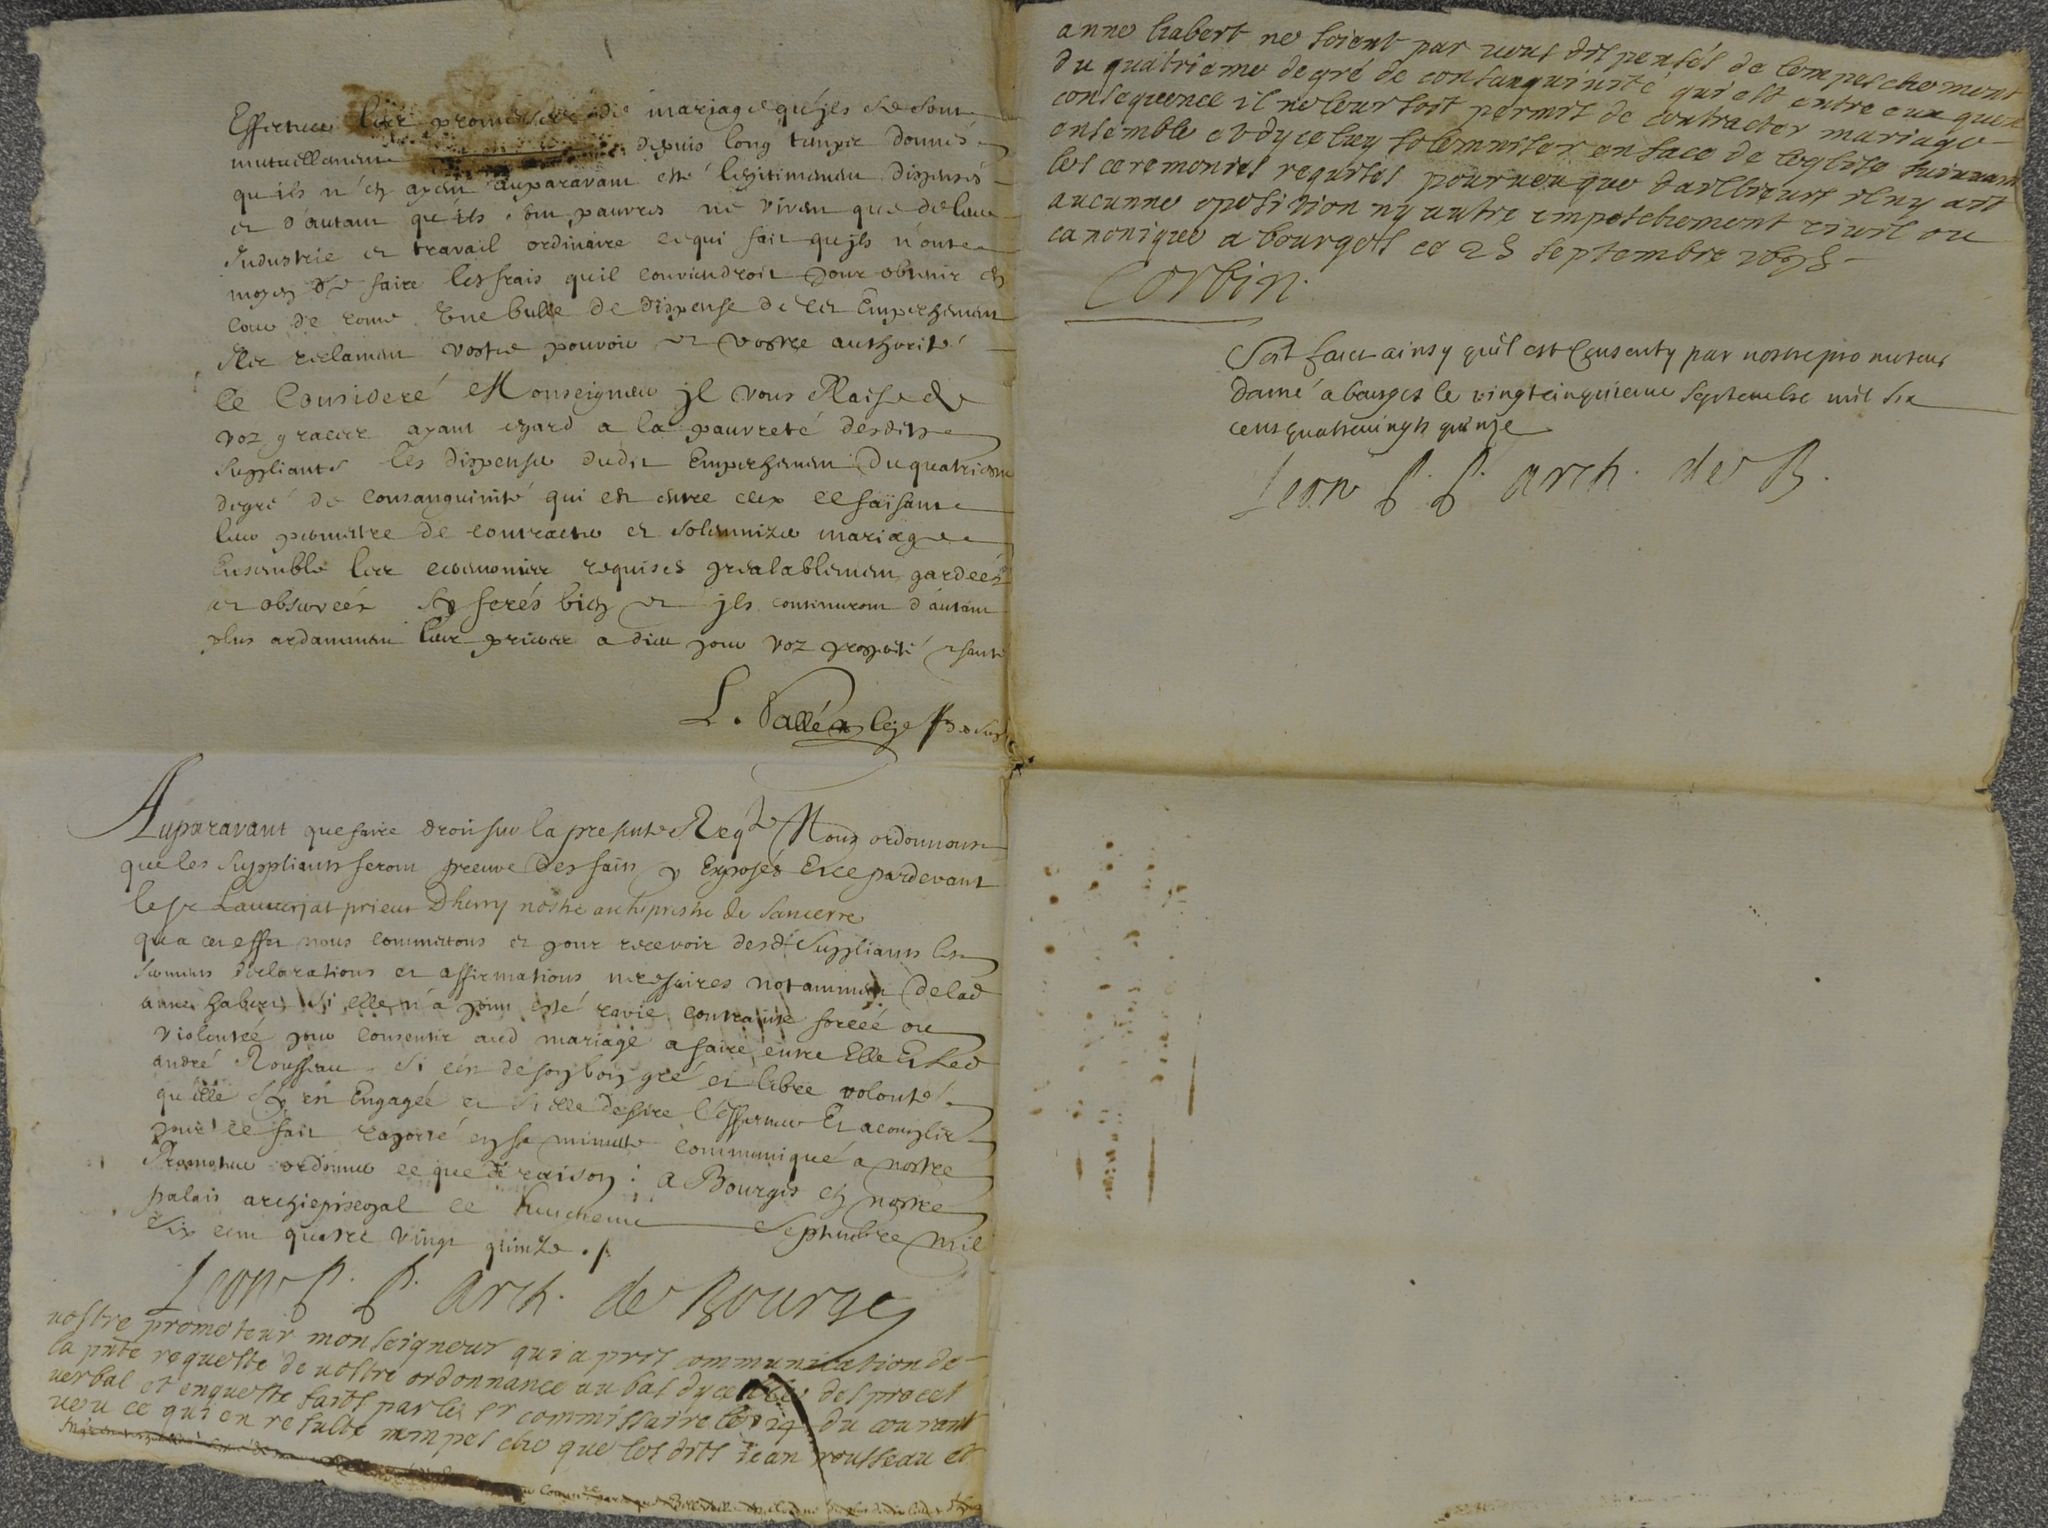 Effectuer leur promesse de mariage qu'jls se sont
mutuellement depuis long temps donnés
qu'ils n'en ayent auparavant esté legitimement dispensés
et d'autant qu'ils sont pauvres ne vivent que de leur
Industrie et travail ordinaire ce qui fait qu'jls n'ont
moyen de faire les frais qu'il conviendroit pour obtenir en
cour de rome Une bulle de dispense de cet Empeschement
Ils reclament vostre pouvoir et vostre authorité
Ce Consideré Monseigneur jl vous Plaise de
voz graces ayant egard a la pauvreté desdits
Suppliants les dispenser dudit Empeschement du quatriesme
degré de Consanguinité qui est entre eux ce faisant
leur permettre de contracter et solemnizer mariage
Ensemble les ceremonies requises prealablement gardeés
et observeés Sy ferés bien et jls continuront d'autant
plus ardamment leur prieres a dieu pour voz prosperité et santé
L. Vallée
Auparavant que faire droit sur la presente Reqte Nous ordonnons
que les Suppliants feront preuve des faits y Exposés Et ce pardevant
le sr Lauverjat prieur Dherry nostre archiprestre de Sancerre
qu'a cet effet nous commettons et pour recevoir desdt Suppliants les
serments declarations et affirmations necessaires notamment de lad
anne habert si elle n'a point esté ravie contrainte forceé ou
violenteé pour consentir aud mariage a faire entre Elle Et led
andré Rousseau si c'est de son bon gré et libre volonté
qu'elle s'y est Engageé et si elle desire l'effectuer Et acomplir
pour ce fait raporté en sa minutte communiqué a nostre
Promoteur ordonner ce que de raison : a Bourges en nostre
palais archiepiscopal ce huictieme Septembre mil
Six cent quatre vingt quinze ./.
Leon P. P. arch. de Bourges
vostre promoteur monseigneur qui a pris communication de
la pnte requeste de vostre ordonnance au bas dycelle des proces
verbal et enqueste faits par le sr commissaire le 24 du courant
veu ce qui en resulte nempesche que les dits jean rousseau et
anne habert ne soient par vous dispensés de lempeschement
du quatrieme degré de consanguinité qui est entre eux quen
consequence il ne leur soit permit de contracter mariage
ensemble et dyceluy solemniser en face de leglise suivant
les ceremonies requises pourveu que dailleurs il ny ait
aucunne oposition ny autre empeschement civil ou
canonique a bourges ce 25 septembre 1695
Corbin
Soit faict ainsy quil est Consenty par nostre promoteur
donné a bourges le vingtcinquieme Septembre mil six
cens quatrevingts quinze
Leon P. P. arch. de B.